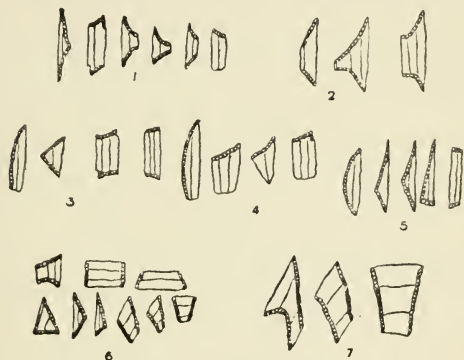 1 2
3 4 5
6 7